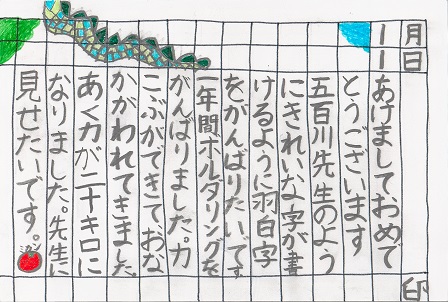 1月1日
あけましておめで
とうございます
五百川先生のよう
にきれいな字が書
けるように習字
をがんばりたいです。
一年間ボルダリングを
がんばりました。力
こぶができておな
かがわれてきました。
あく力が二十キロに
なりました。先生に
見せたいです。
ミカン
印